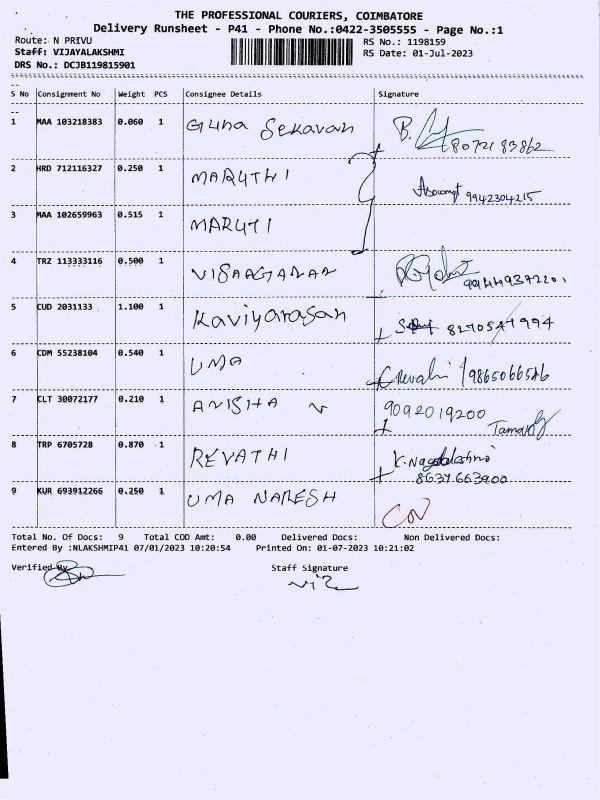 THE PROFESSIONAL COURIERS, COIMBATORE
Delivery Runsheet - P41 - Phone No.:0422-3505555 - Page No.:1
Route: N PRIVU RS No.: 1198159
Staff: VIJAYALAKSHMI RS Date: 01-Jul-2023
DRS No.: DCJB119815901
S No Consignment No Weight PCS Consignee Details Signature
1 MAA 103218383 0.060 1 Guna Sekavan B.
8072183862
2 HRD 712116327 0.250 1 MARUTHI 9942304215
3 MAA 102659963 0.515 1 MARUTI
4 TRZ 113333116 0.500 1 VISAAGANAN 9944937220
5 CUD 2031133 1.100 1 Kaviyarasan 8270547994
6 CDM 55238104 0.540 1 UMA Revathi 9865066516
7 CLT 30072177 0.210 1 ANISHA 9092019200
8 TRP 6705728 0.870 1 REVATHI K. Nagalakshmi
8637663900
9 KUR 693912266 0.250 1 UMA NARESH
Total No. Of Docs: 9 Total COD Amt: 0.00 Delivered Docs: Non Delivered Docs:
Entered By :NLAKSHMIP41 07/01/2023 10:20:54 Printed On: 01-07-2023 10:21:02
Verified By Staff Signature